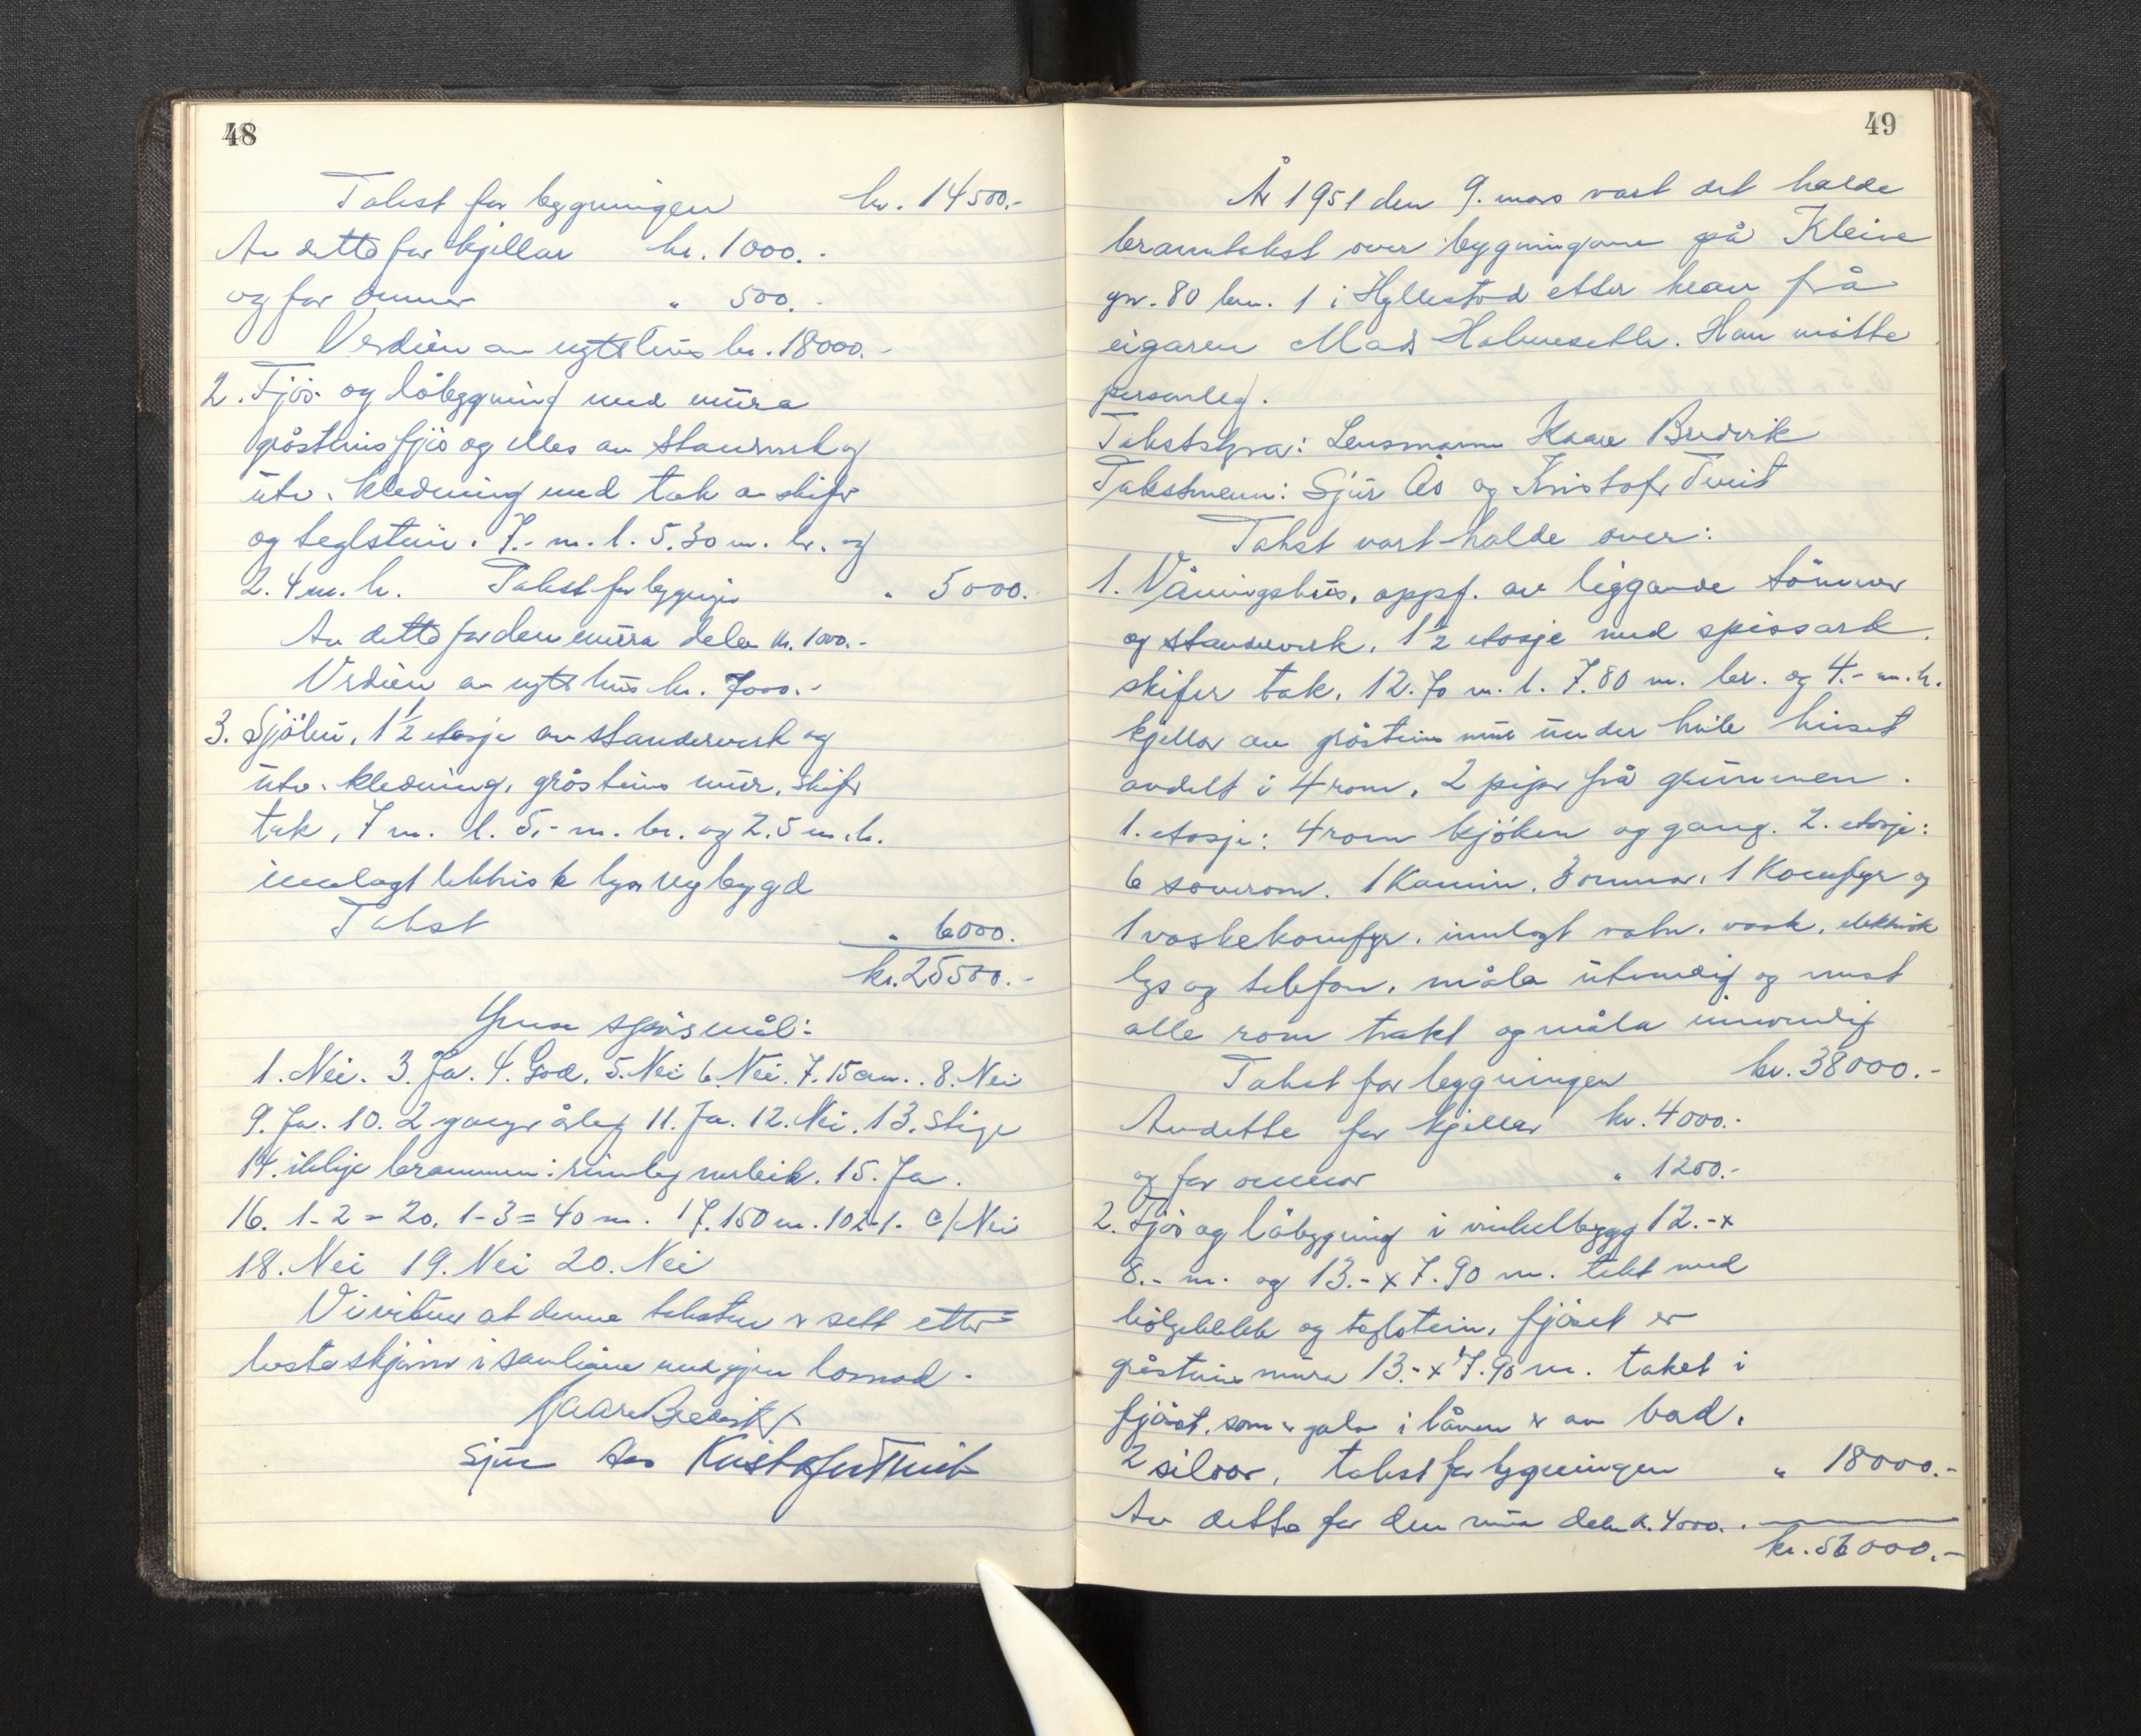 48
Takst for bygningen kr. 14500.-
Av dette for kjellar kr. 1000.-
og for omnar " 500.-
Verdien av nytt hus kr. 18000.-
2. Fjøs- og løbygning med mura
gråsteins fjøs og elles av standverk og
utv. kledning med tak av skifer
og teglstein. 7.- m. l. 5.30 m. br. og
2.4 m. h. Takst for bygningen " 5000.-
Av dette for den mura delen kr. 1000.-
Verdien av nytt hus kr. 7000.-
3. Sjøbu, 1½ etasje av standerverk og
utv. kledning, gråsteins mur, skifer
tak, 7 m. l. 5.- m. br. og 2.5 m. h.
innlagt elektrisk lys nybygd
Takst " 6000.-
kr. 25500.-
Ymse spørsmål:
1. Nei. 3. Ja. 4. God. 5. Nei 6. Nei. 7. 15 cm. 8. Nei
9. Ja. 10. 2 gonger årleg 11. Ja. 12. Nei. 13. Stige
14. ikkje brannmen: rimeleg 15. Ja.
16. 1-2 = 20. 1-3 = 40 m. 17. 150 m. 102-1. c/ Nei
18. Nei 19. Nei 20. Nei
Vi vitnar at denne taksten er sett etter
beste skjønn i samhøve med gjen lovnad.
Kaare Bredvik
Sjur Aas Kristofer Tveit
49
År 1951 den 9. mars vart det halde
branntakst over bygningane på Kleive
gnr. 80 bnr. 1 i Hyllestad etter krav frå
eigaren Mads Holmeseth. Han møtte
personleg.
Takststyrar: Lensmann Kaare Bredvik
Takstmenn: Sjur Ås og Kristofer Tveit
Takst vart halde over:
1. Våningshus, oppf. av liggande tømmer
og standerverk, 1½ etasje med spissark.
skifer tak, 12.70 m. l. 7.80 m. br. og 4.- m. h.
kjellar av gråsteins mur under heile huset
avdelt i 4 rom, 2 piper frå grunnen.
1. etasje: 4 rom kjøken og gang. 2. etasje:
6 soverom. 1 Kamin, 3 omnar, 1 Komfyr og
1 vaskekomfyr, innlagt vatn, vask, elektrisk
lys og telefon, måla utvendig og mest
alle rom trekt og måla innvendig
Takst for bygningen kr. 38000.-
Av dette for kjellar kr. 4000.-
og for omnar " 1200.-
2. Fjøs og løbygning i vinkelbygg 12.- x
8.- m. og 13.- x 7.90 m. tekt med
bølgeblekk og teglstein, fjøset er
gråsteins mura 13.- x 7.90 m. taket i
fjøset, som er golv i låven er av bord.
2 siloar, takst for bygningen " 18000.-
Av dette for den mura delen k. 4000.-
kr. 56000.-